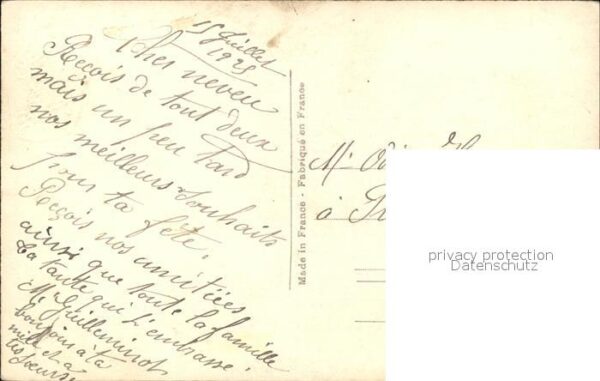 15 Juillet
1925
Cher neveu
Reçois de tout deux
mais un peu tard
nos meilleurs souhaits
pour ta fête.
Reçois nos amitiées
ainsi que toute la famille
Ta tante qui t'embrasse.
Mr Guilleminot
bonjour à ta
tes soeurs
Made in France - Fabriqué en France
Mr
à
privacy protection
Datenschutz